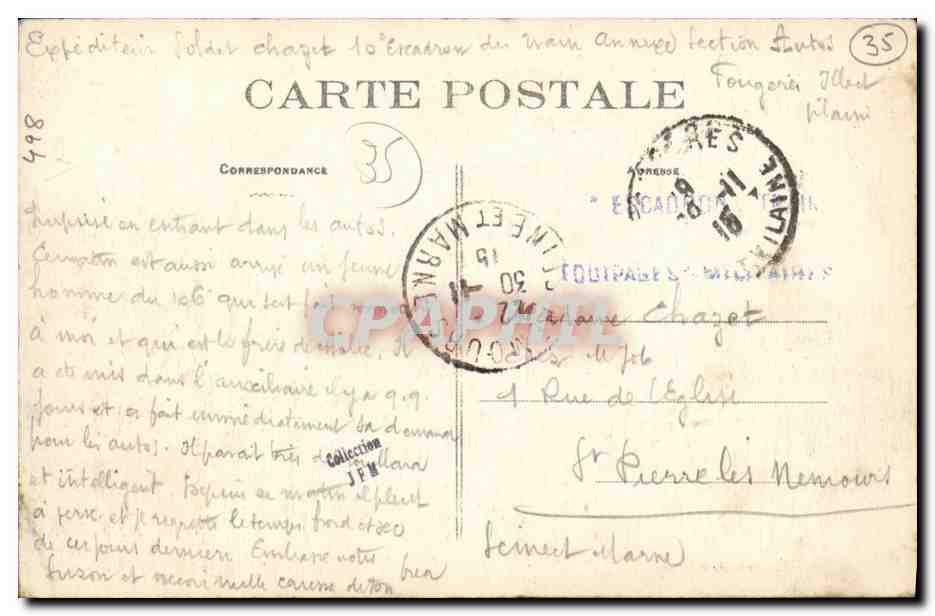 Expéditeur Soldat Chazet 10e Escadron du train Annexe Section Autos
35
Fougères Illect
Vilaine
CARTE POSTALE
498
35
CORRESPONDANCE
ADRESSE
* ESCADRON
EQUIPAGES MILITAIRES
VILAINE
19
8-11
15
SEINE ET MARNE
15
30
22
CPAPHIL
en entrant dans les autos.
Ce matin est aussi arrivé un jeune
homme du 106e qui fait
à moi et qui est le frère de
a été mis dans l'auxiliaire il y a q.q.
jours et a fait immédiatement sa demande
pour les autos. Il parait très
et intelligent Depuis ce matin il pleut
à verse et je regrette le temps froid et sec
de ces jours derniers Embrasse notre
Suzon et reçois mille caresses de ton
Collection
JPM
Madame Chazet
1 Rue de l'Eglise
St Pierre les Nemours
Seine et Marne